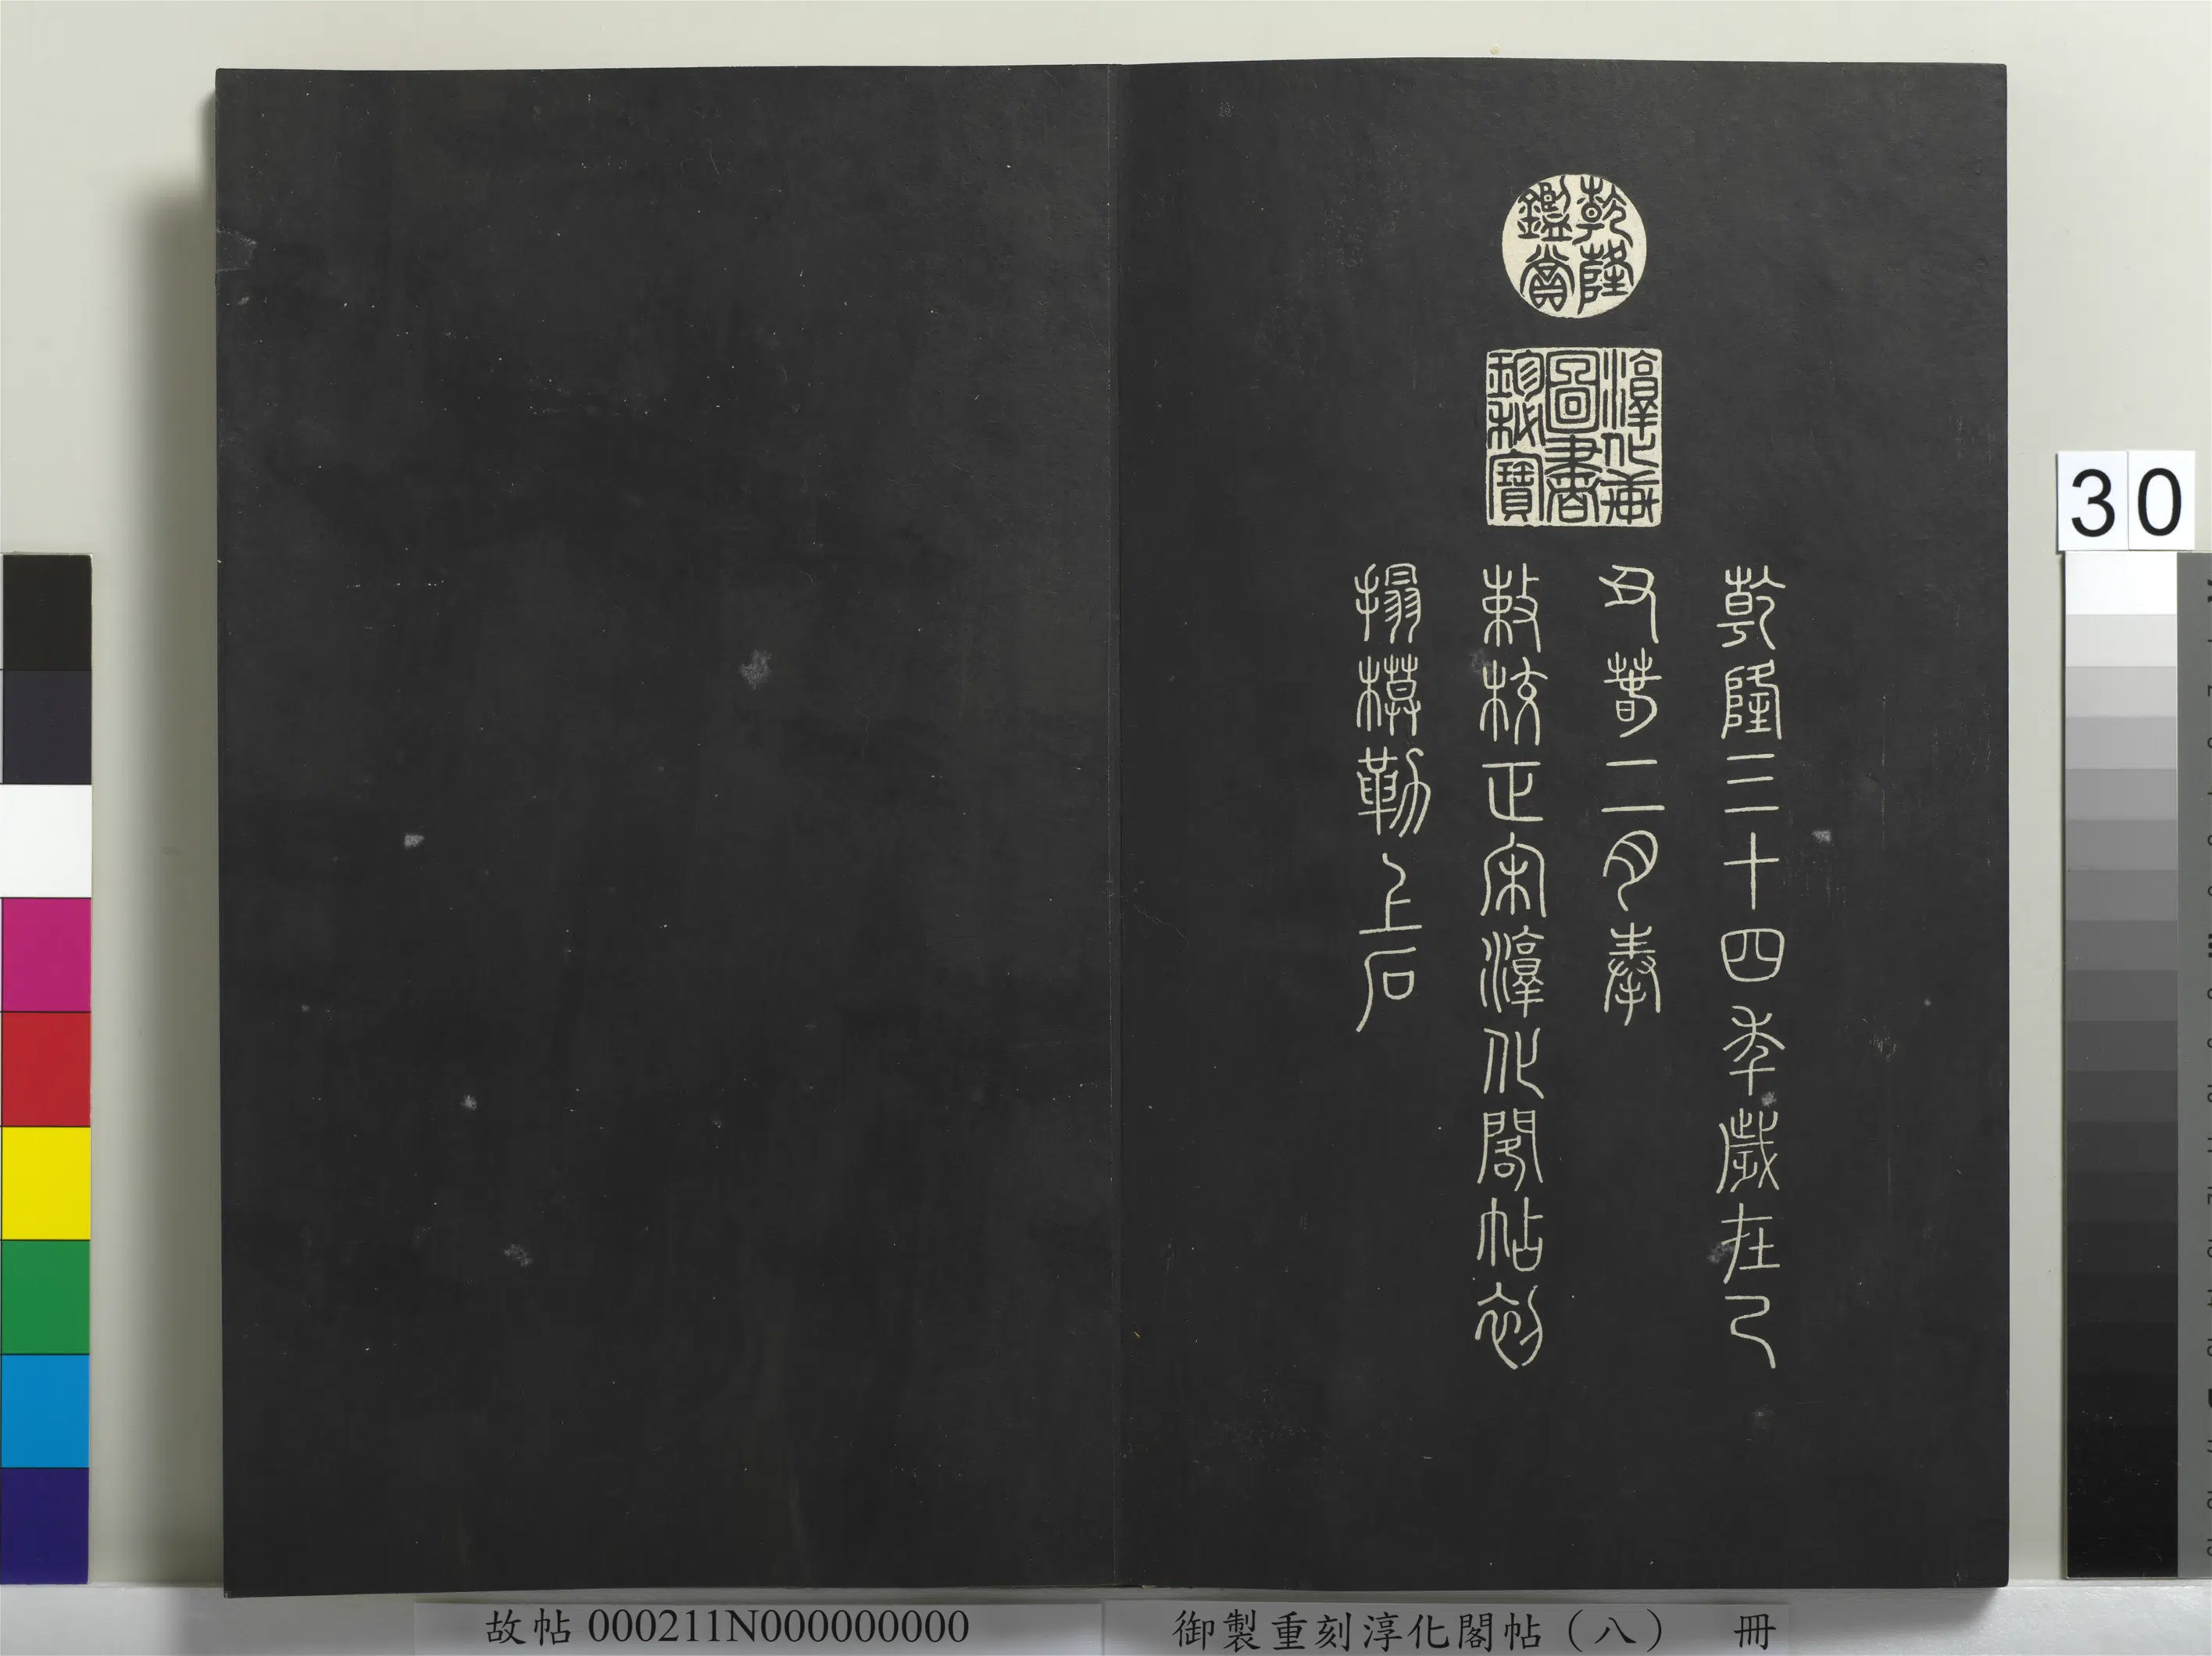 乾隆
鑑賞
淳化軒
圖書
珍秘寶
乾隆三十四年歲在己
丑春二月奉
敕校正宋淳化閣帖初
搨模勒上石
30
故帖000211N000000000
御製重刻淳化閣帖（八） 冊